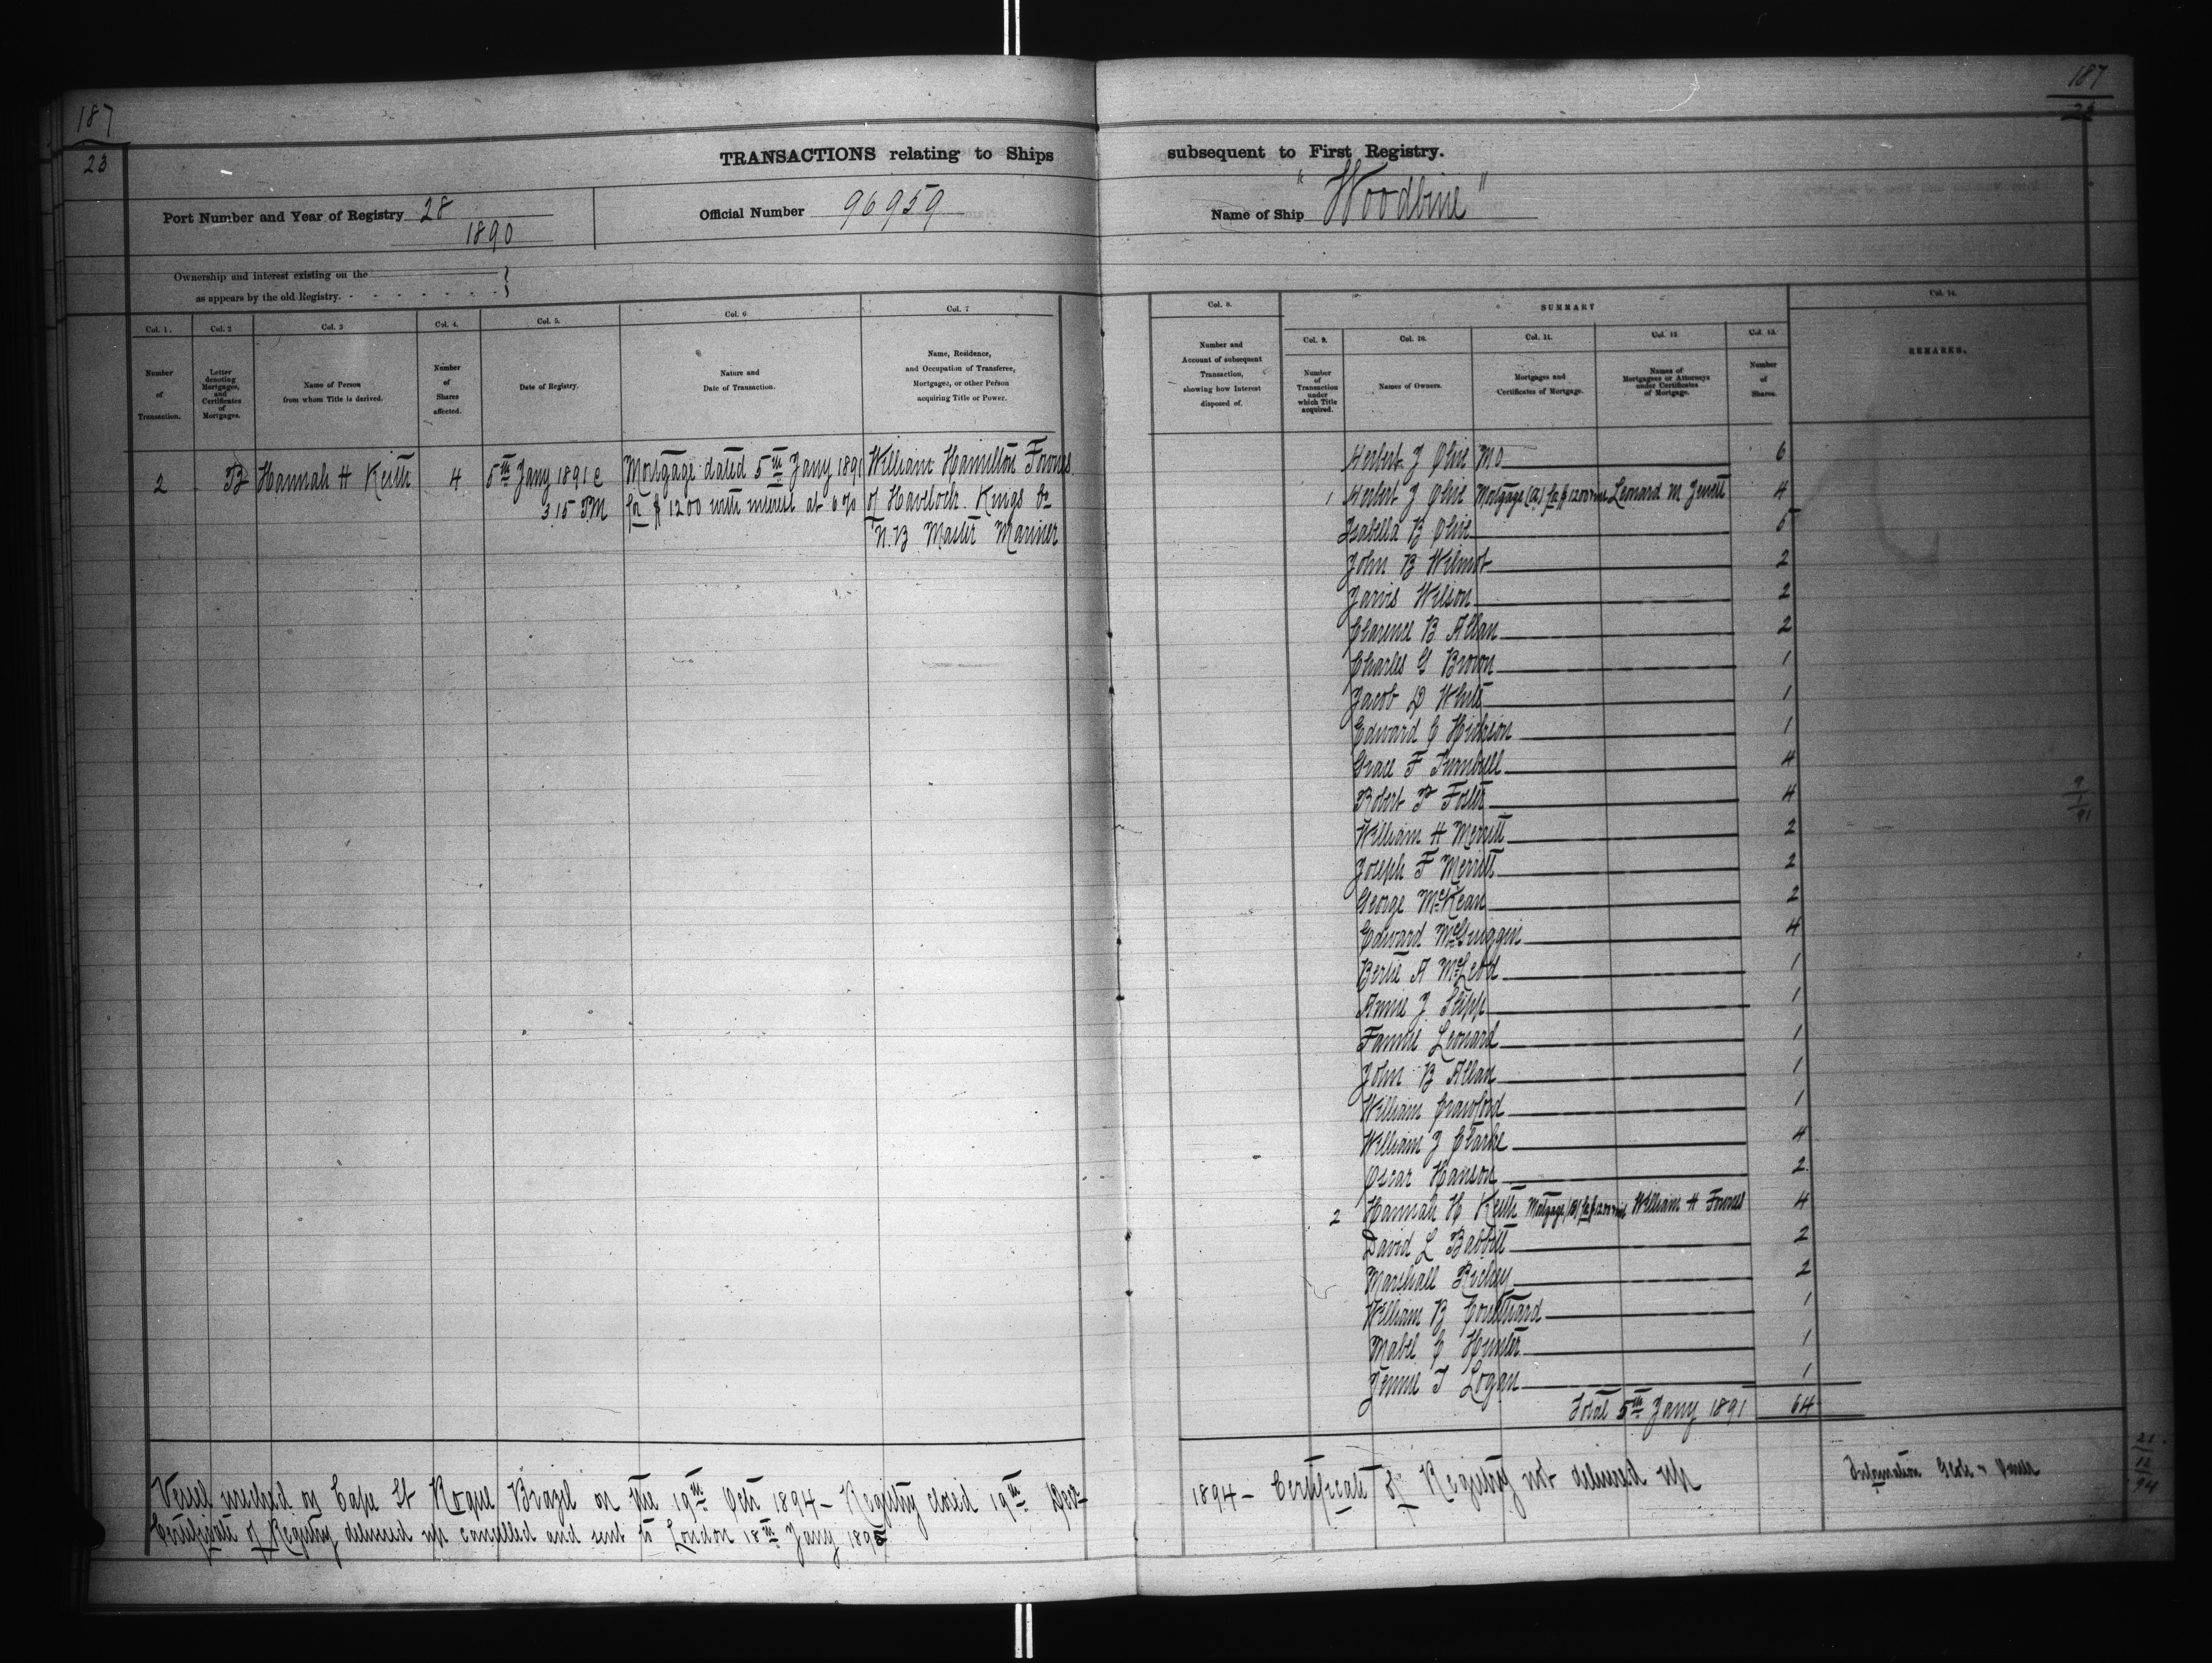 187
23
TRANSACTIONS relating to Ships
Port Number and Year of Registry 28
1890
Official Number 96959
Ownership and interest existing on the
as appears by the old Registry.
Col. 1.
Number
of
Transaction.
Col. 2
Letter
denoting
Mortgages,
and
Certificates
of
Mortgages.
Col. 3
Name of Person
from whom Title is derived.
Col. 4.
Number
of
Shares
affected.
Col. 5.
Date of Registry.
Col. 6
Nature and
Date of Transaction.
Col. 7
Name, Residence,
and Occupation of Transferee,
Mortgagee, or other Person
acquiring Title or Power.
2 B Hannah H Keith 4 5th Jany 1891 @ Mortgage dated 5th Jany 1891 William Hamilton Fownes
3.15 P.M for $1200 with interest at 6% of Havelock Kings Co
N.B Master Mariner
Vessel wrecked on Cape St Roque Brazil on the 19th Octr 1894 – Registry closed 19th Decr
Certificate of Registry delivered up cancelled and sent to London 18th Jany 1895
187
23
subsequent to First Registry.
Name of Ship "Woodbine"
Col. 8.
Number and
Account of subsequent
Transaction,
showing how Interest
disposed of.
SUMMARY
Col. 9.
Number
of
Transaction
under
which Title
acquired.
Col. 10.
Names of Owners.
Col. 11.
Mortgages and
Certificates of Mortgage.
Col. 12.
Names of
Mortgagees or Attorneys
under Certificates
of Mortgage.
Col. 13.
Number
of
Shares.
Col. 14.
REMARKS.
Herbert J Olive M O 6
1 Herbert J Olive Mortgage (A) for $1200 Leonard M Jewett 4
Isabella B Olive 5
John B Wilmot 2
Jarvis Wilson 2
Clarence B Allan 2
Charles G Brown 1
Jacob D White 1
Edward C Hickson 1
Grace F Turnbull 4
Robert P Foster 4
William H Merritt 2
Joseph F Merritt 2
George McKean 2
Edward McGuiggin 4
Bertie A McLeod 1
Annie J Stipp 1
Fannie Leonard 1
John B Allan 1
William Crawford 1
William J Clarke 4
Oscar Hanson 2
2 Hannah H Keith Mortgage (B) for $1200 William H Fownes 4
David L Babbitt 2
Marshall Richey 2
William B Coulthard 1
Mabel C Hunter 1
Jennie T Logan 1
Total 5th Jany 1891 64
9
1
91
1894 – Certificate of Registry not delivered up
Information
21
12
94